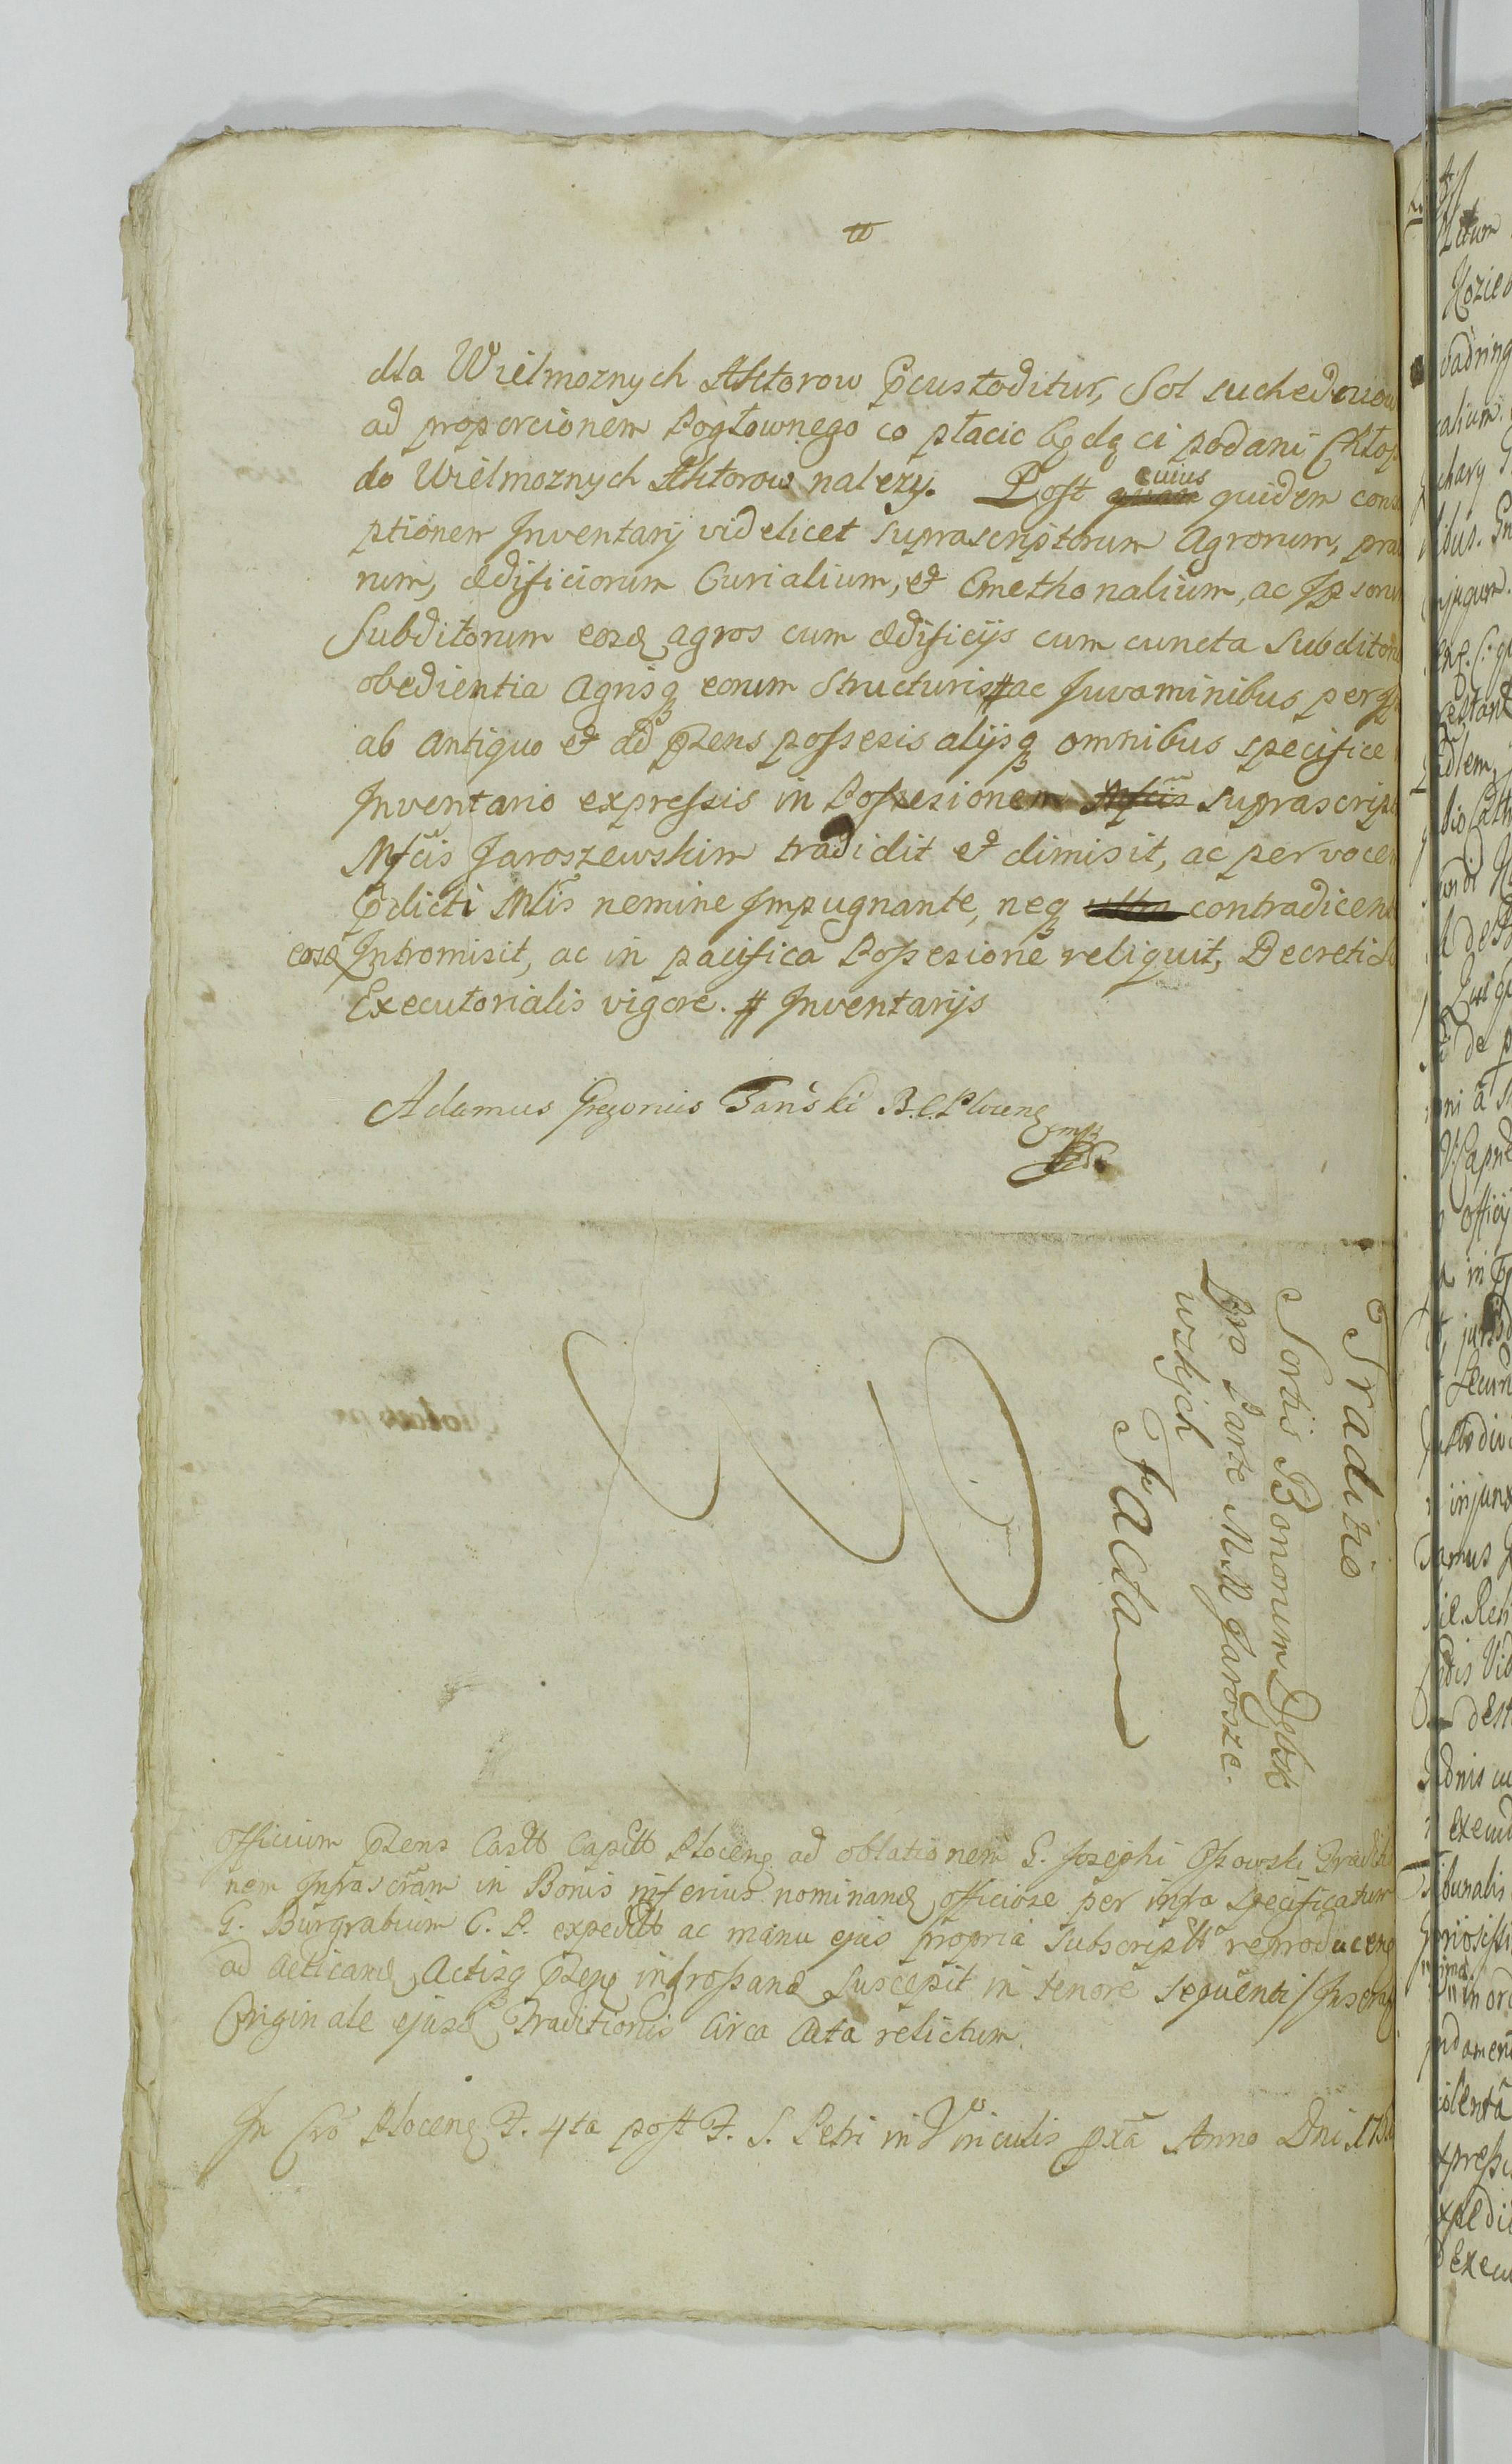 dla Wielmoznych Aktorow Pcustoditur, Sol suchedniow
ad proporcionem Pogłownego co płacic będą ci podani Chłop
do Wielmoznych Aktorow nalezy. Post cuius quidem cons
ptionem Inventarij videlicet suprascriptorum Agrorum, prat
rum, ædificiorum Curialium, et Cmethonalium, ac Ipsorum
Subditorum eosd agros cum ædificijs cum cuncta subditorum
obedientia Agrisq eorum Structuris # ac Juvaminibus per
ab antiquo et ad Pzens possesis alijsq omnibus specifice
Inventario expressis in Possesionem Mfcis suprascript
Mfcis Jaroszewskim tradidit et dimisit, ac per vocem
Pdicti Mlis nemine Impugnante, neq contradicen
eosd Intromisit, ac in pacifica Possesione reliquit, Decreti
Executorialis vigore. # Inventarijs
Adamus Gregorius Tański B.C. Plocens
mp
Traditio
Sortis Bonorum Dębsk
Pro Parte M.M Jarosze.
wskich
Facta
Officium Pzens Castr Capit Plocens ad oblationem G. Josephi Ossowski Traditio
nem Infrascram in Bonis inferius nominand officiose per infra specificatum
G. Burgrabium C. P. expedit ac manu ejus propria Subscript reproducens
ad acticand Actisq Pzens ingrossand suscepit in tenore sequenti / Inscrap
Originale ejusd Traditionis Circa Acta relictum.
In Cro Plocens F. 4ta post F. S. Petri in Vinculis pxa Anno Dni 17